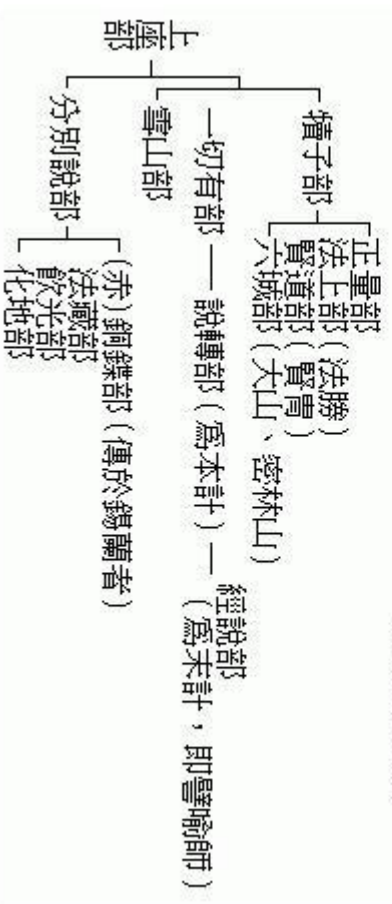 上座部
犢子部
正量部
法上部(法勝)
賢道部(賢冑)
六城部(大山、密林山)
一切有部
說轉部(為本計)
經說部
(為末計，即譬喻師)
雪山部
分別說部
(赤)銅鍱部(傳於錫蘭者)
法藏部
飲光部
化地部